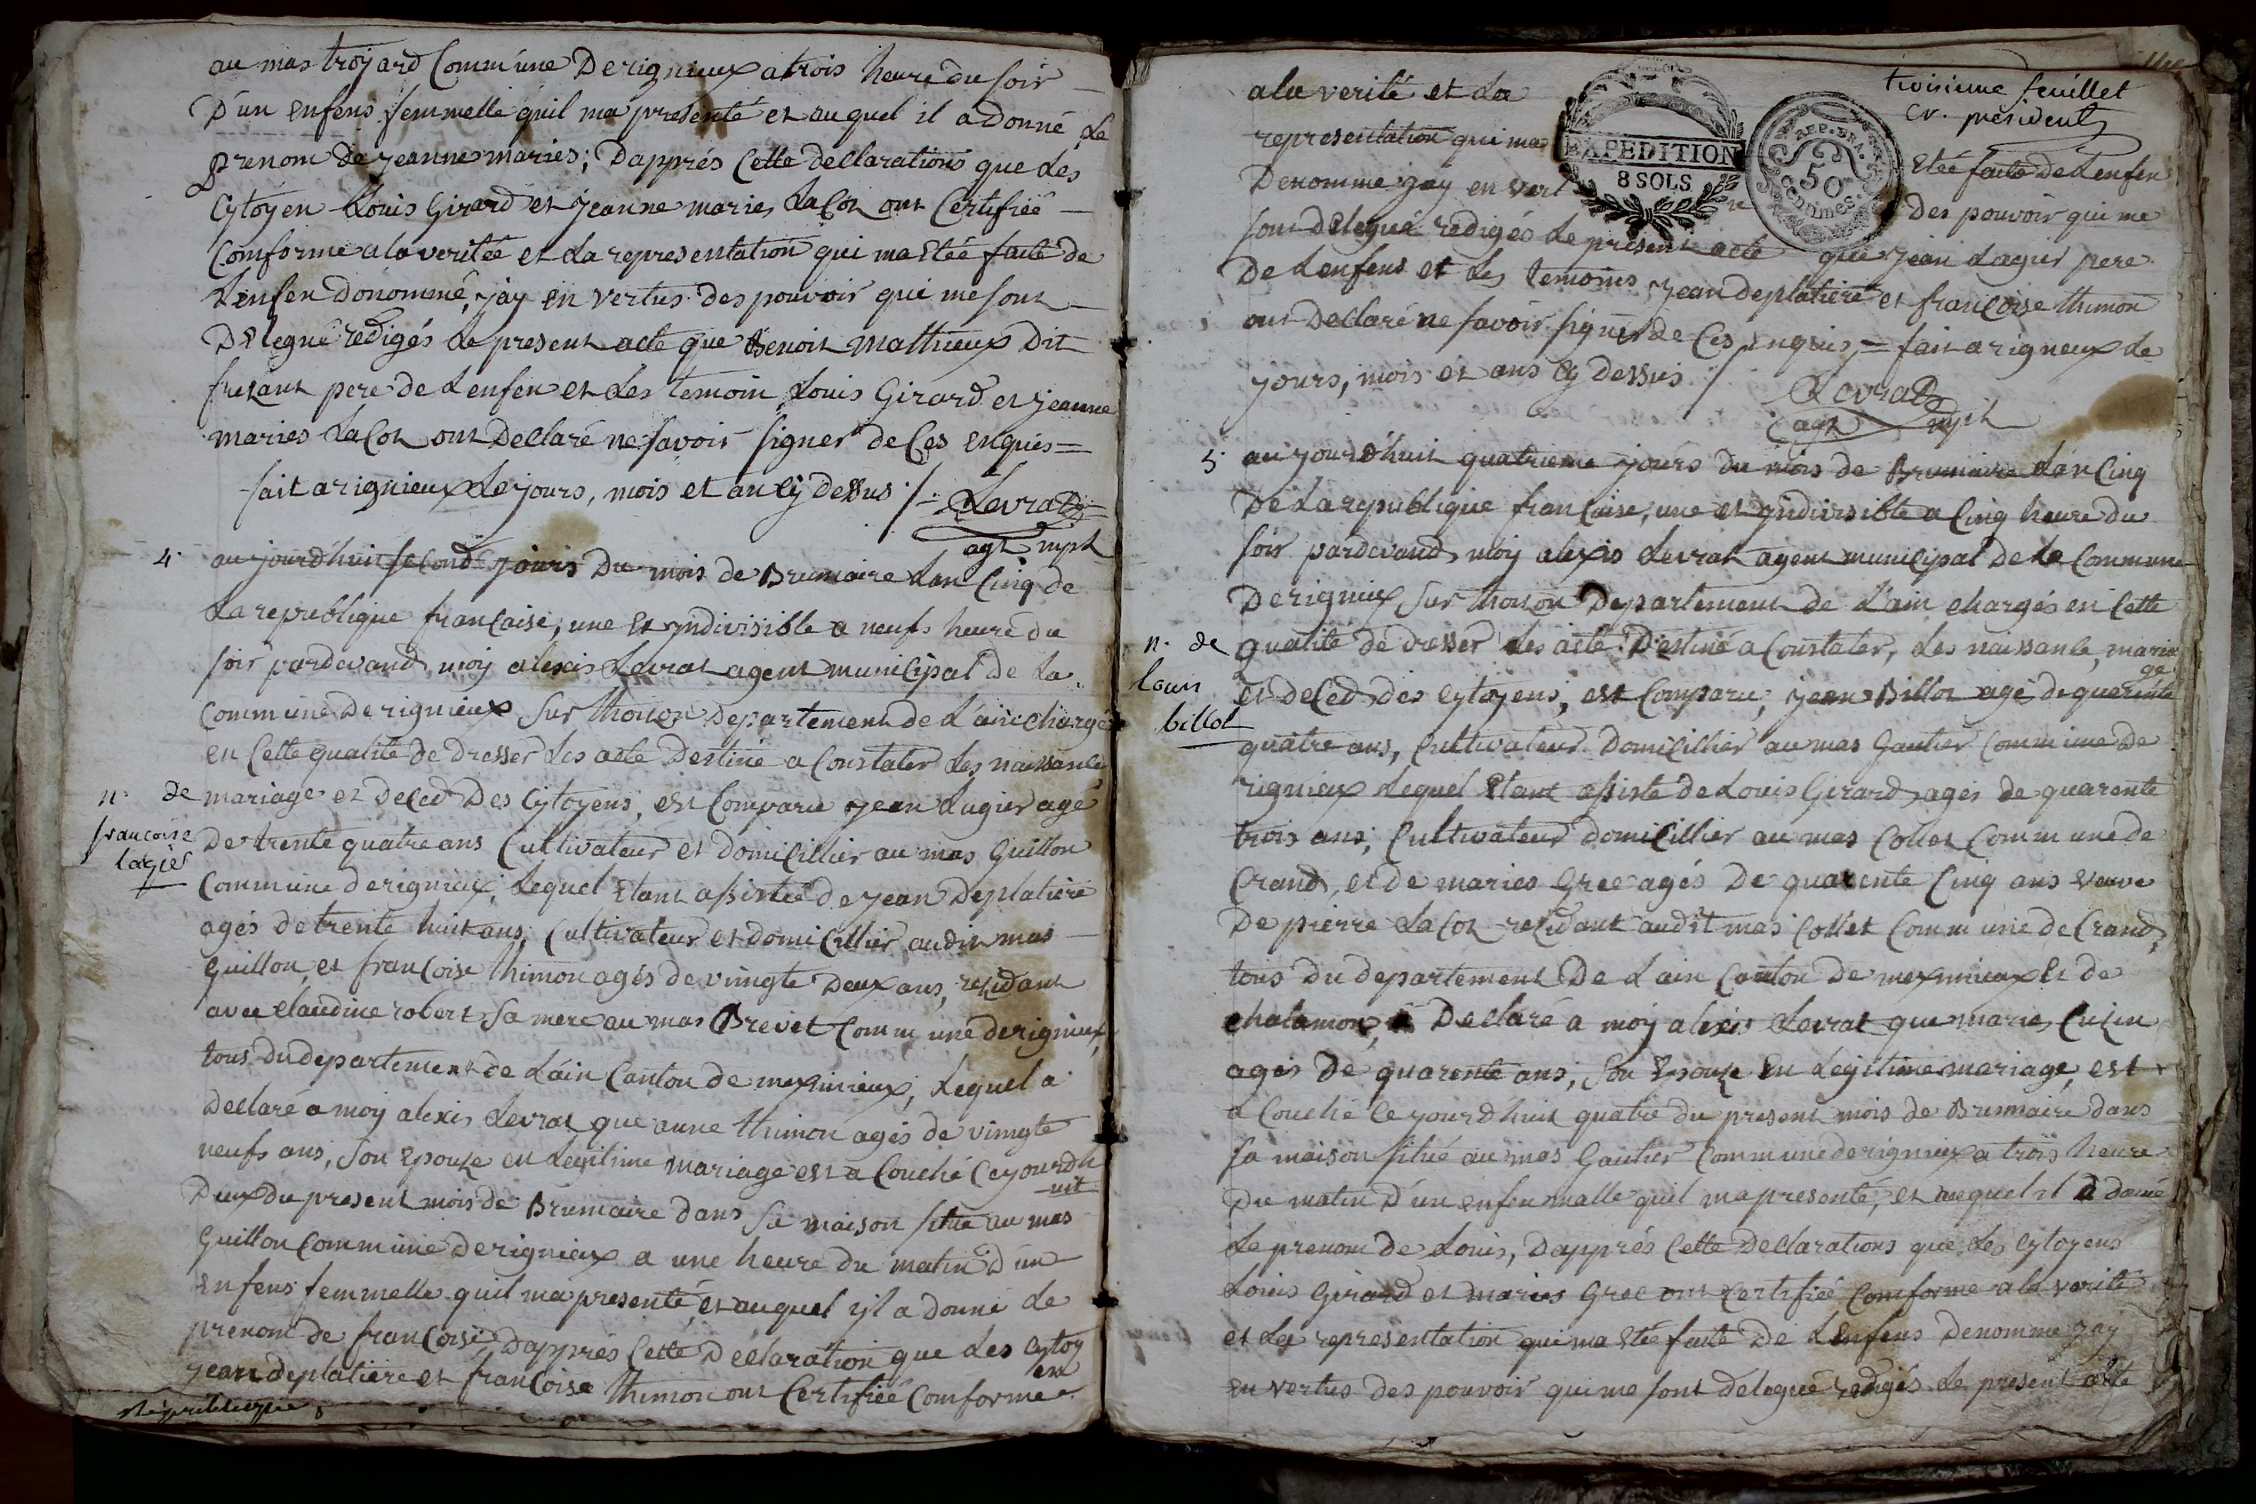 au mas troyard Commune Derignieux a trois heure du soir
D'un enfens femmelle quil ma presenté et auquel il a donné Le
prenom de jeanne maries; Dapprés Cette declarations que Les
Cytoyen Louis Girard et jeanne maries LaCot ont Certifiée
Comforme ala veritée et La representation qui ma Etée faite de
L'enfen donommé, jäy en vertus des pouvoir qui me sont
Delegué redigés Le present acte que Benoit Mathieux Dit
frelant pere de Lenfen et Les temoin Louis Girard et jeanne
maries LaCot ont Declaré ne savoir signer de Ces enquis =
fait a rignieux Le jours, mois et an Cy dessus ./. Levrat
agt mpl
4. aujourd'huit seCond jours Du mois de Brumaire Lan Cinq de
La republique françaisé, une et yndivisible a neufs heure du
soir pardevand moy alexis Levrat agent municipal de La
Commune Derignieux sur thoison Departement de L'ain chargé
en Cette qualité de Dresser Les acte Destiné a Constater Les naissance
n. de
francoise
lagier
mariage et deCed Des Cytoyens, est Comparu jean Lagier agé
De trente quatre ans Cultivateur et domiCillier au mas Guillon
Commune derignieux, Lequel Etant assistée de jean Deplatiere
agés de trente huit ans, Cultivateur et domiCillier audit mas
Guillon, et françoise thimon agés de vinngte Deux ans, residant
avec claudine robert sa mere au mas Brevet Commune derignieux,
tous du departement de L'ain Canton de meximieux, Lequel a
Declaré a moy alexis Levrat que anne thimon agés de vinngte
neufs ans, son Epouze en Legitime mariage est a Couché Cejourdh
uit
Deux du present mois de Brumaire dans sa maison situé au mas
Guillon Commune derignieux a une heure du matin d'un
enfens femmelle quil ma presenté, et auquel yl a donné Le
prenom de françoise, Dapprés Cette Declaration que Les Cytoy
en
jean deplatiere et françoise thimon ont Certifiée Comforme
troisieme feuillet
Cr. president
EXPEDITION
8 SOLS
REP. FRA.
50
Centimes
ala verité et La
representation qui ma Etée faite de Lenfen
Denomme jay en vert des pouvoir qui me
sont Delegué redigés Le present acte que jean Lagier pere
De Lenfens et Les temoins jean deplatiere et françoise thimon
ont Declaré ne savoir signer de Ces enquis, = fait a rigneux Le
jours, mois et ans Cy dessus ./. Levrat
agt mpl
5. aujourd'huit quatrieme jours du mois de Brumaire Lan Cinq
De La republique françaisse, une et yndivisible a Cinq heure du
soir pardevand moy alexis Levrat agent municipal de La Commune
Derignieux sur thoison Departement de L'ain chargés en Cette
n. de
louis
billot
qualité de dresser Les acte Destiné a Constater, Les naissance, maria
ge
et deCed des Cytoyens, est Comparu, jean Billot agé de quarente
quatre ans, Cultivateur Domicillier au mas Gautier Commune de
rignieux Lequel Etant assisté de Louis Girard agés de quarente
trois ans, Cultivateur domiCillier au mas Collet Commune de
Crand, et de maries Gree agés De quarente Cinq ans veuve
De pierre LaCot residant audit mas Collet Commune de Crand,
tous du departement De Lain Canton de meximieux et de
chalamon, a Declaré a moy alexis Levrat que marie Cusin
agés de quarente ans, son Epouze en Legitime mariage, est
a Couché Cejourd'huit quatre du present mois de Brumaire dans
sa maison situé au mas Gautier Commune derignieux a trois heure
Du matin d'un enfen malle quil ma presenté, et auquel il a donné
Le prenom de Louis, Dapprés Cette Declarations que Les Cytoyens
Louis Girard et maries Gree ont Certifiée Comforme ala verité
et La representation qui ma Etée faite De Lenfens Denomme jay
en vertus des pouvoir qui me sont delegué redigés Le present acte